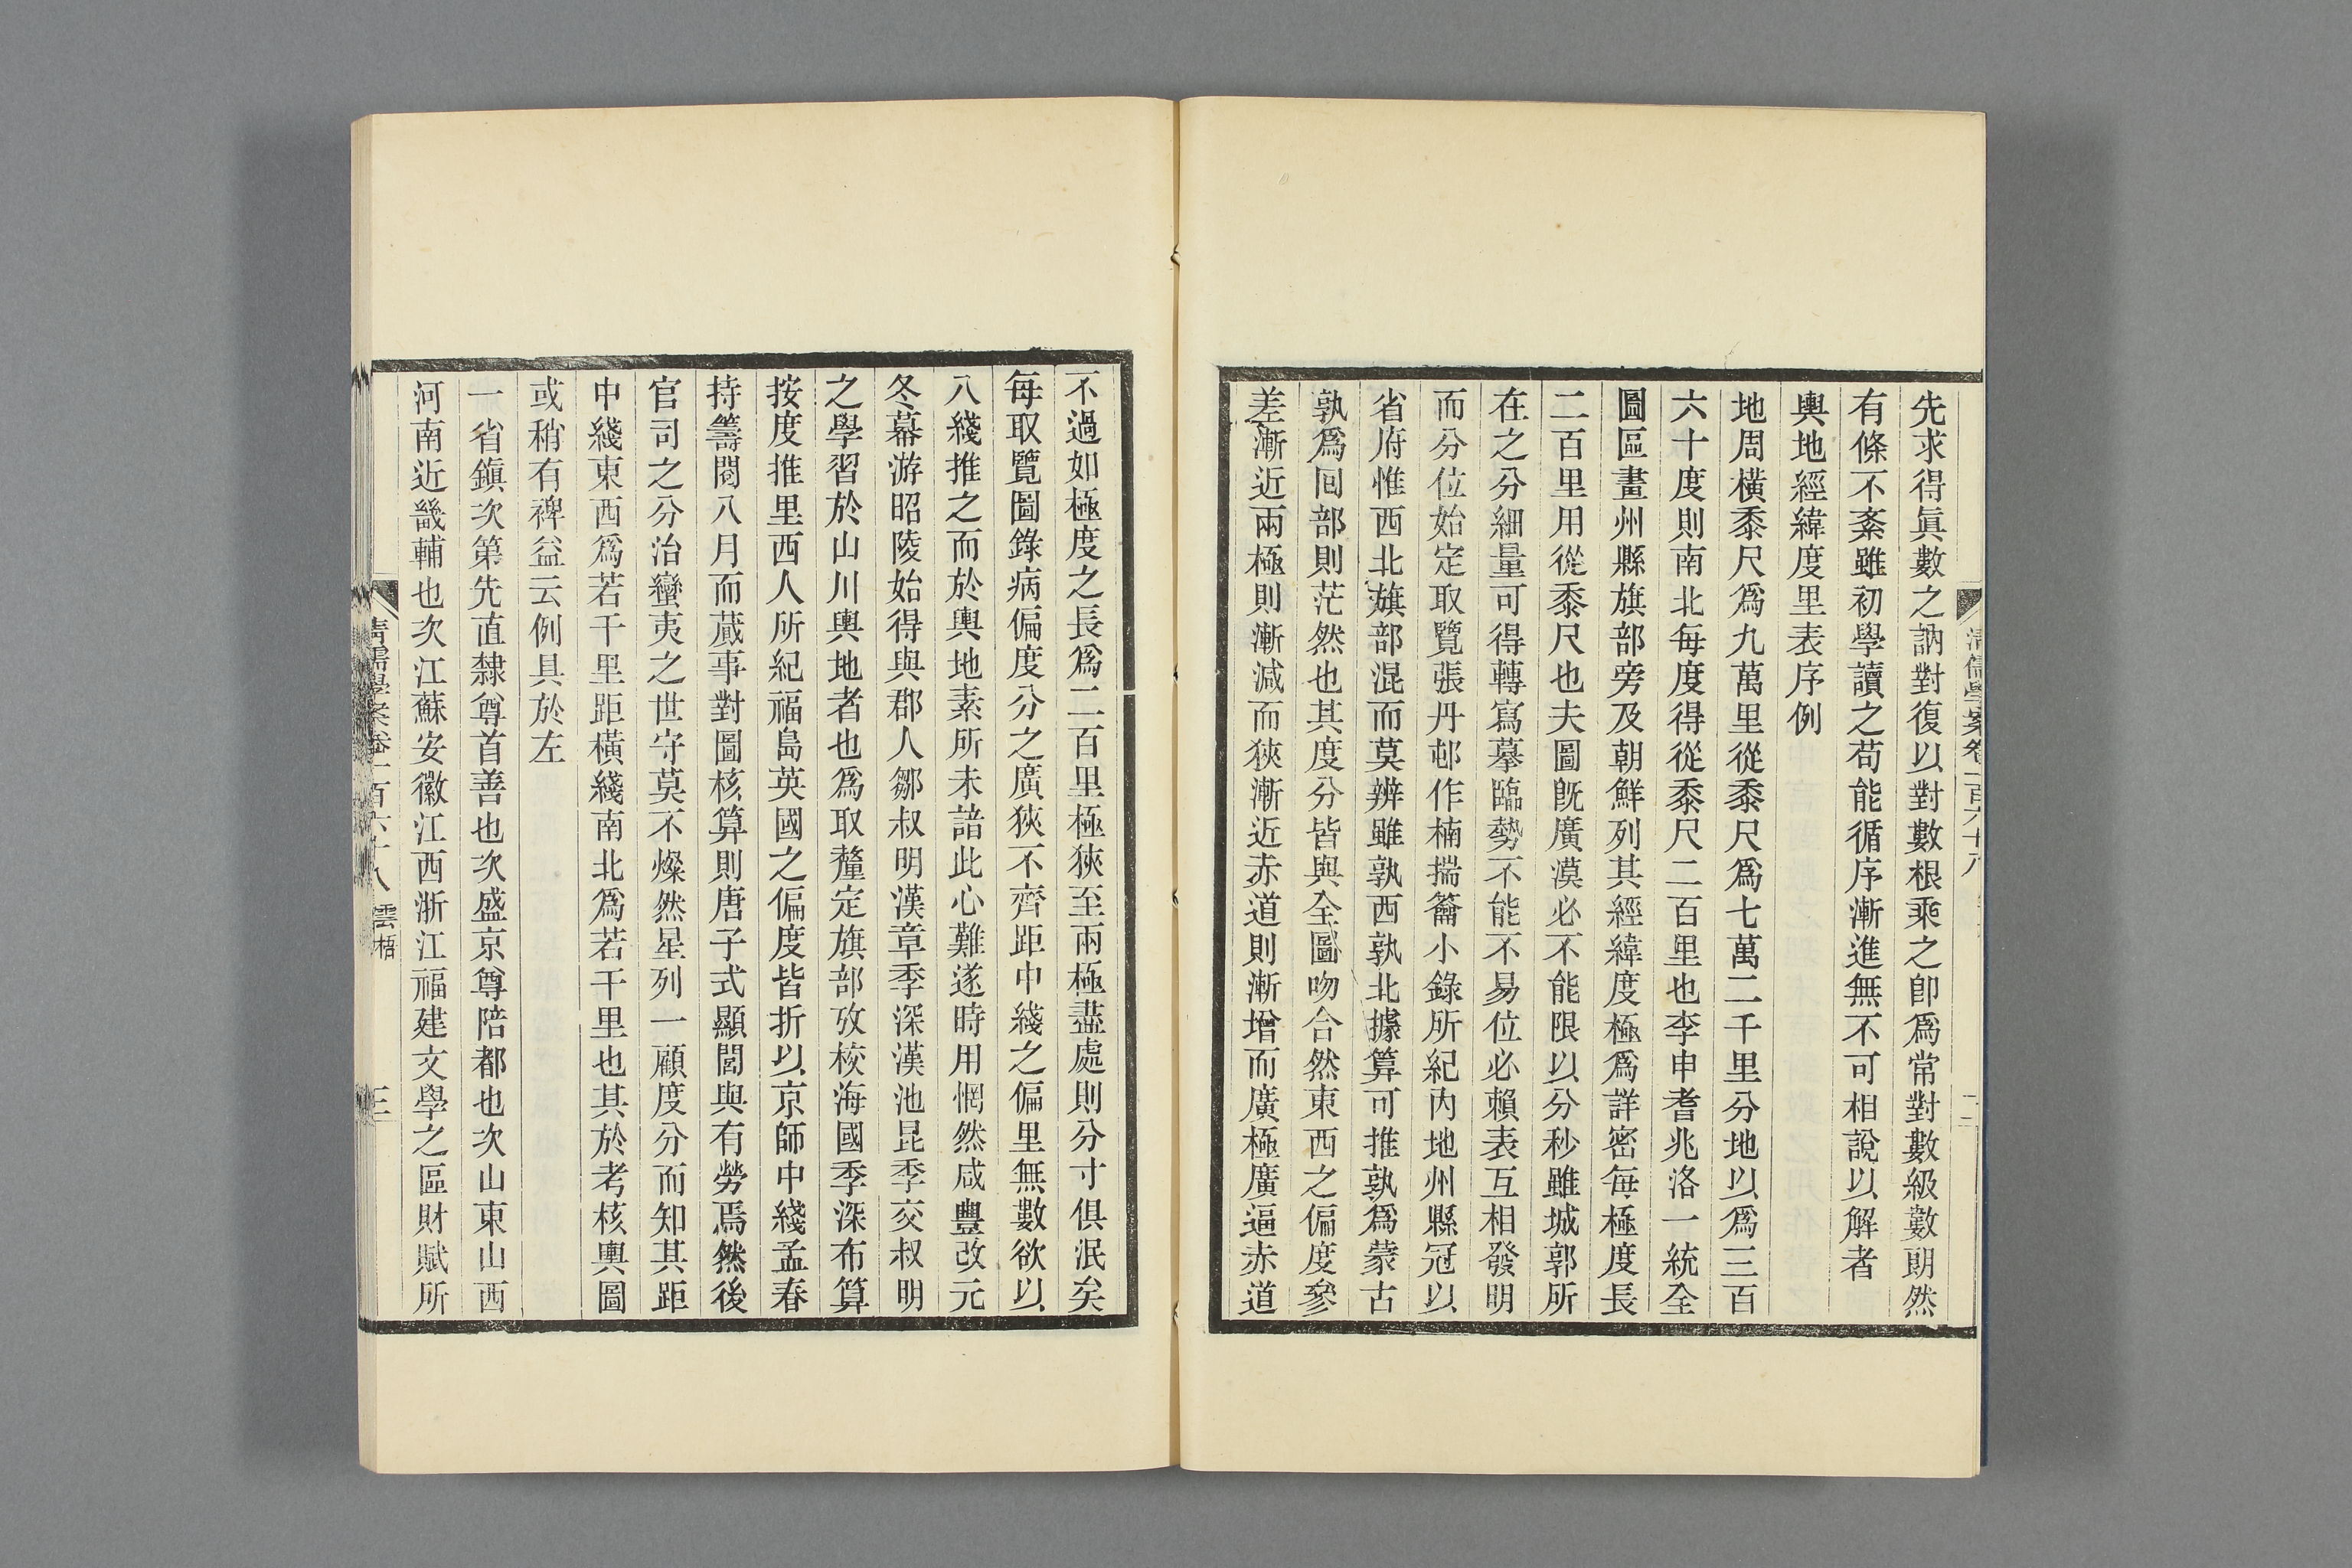 先求得眞數之訥對復以對數根乘之卽爲常對數級數朗然
有條不紊雖初學讀之苟能循序漸進無不可相說以解者
輿地經緯度里表序例
地周橫黍尺爲九萬里從黍尺爲七萬二千里分地以爲三百
六十度則南北每度得從黍尺二百里也李申耆兆洛一統全
圖區畫州縣旗部旁及朝鮮列其經緯度極爲詳密每極度長
二百里用從黍尺也夫圖旣廣漠必不能限以分秒雖城郭所
在之分細量可得轉寫摹臨勢不能不易位必賴表互相發明
而分位始定取覽張丹邨作楠揣籥小錄所紀內地州縣冠以
省府惟西北旗部混而莫辨雖孰西孰北據算可推孰爲蒙古
孰爲回部則茫然也其度分皆與全圖吻合然東西之偏度參
差漸近兩極則漸減而狹漸近赤道則漸增而廣極廣逼赤道
不過如極度之長爲二百里極狹至兩極盡處則分寸俱泯矣
每取覽圖錄病偏度分之廣狹不齊距中綫之偏里無數欲以
八綫推之而於輿地素所未諳此心難遂時用惘然咸豐改元
冬幕游昭陵始得與郡人鄒叔明漢章季深漢池昆季交叔明
之學習於山川輿地者也爲取釐定旗部攷校海國季深布算
按度推里西人所紀福島英國之偏度皆折以京師中綫孟春
持籌閱八月而蕆事對圖核算則唐子式顯閭與有勞焉然後
官司之分治蠻夷之世守莫不燦然星列一顧度分而知其距
中綫東西爲若干里距橫綫南北爲若干里也其於考核輿圖
或稍有裨益云例具於左
一省鎭次第先直隸尊首善也次盛京尊陪都也次山東山西
河南近畿輔也次江蘇安徽江西浙江福建文學之區財賦所
清儒學案卷一百六十八
三